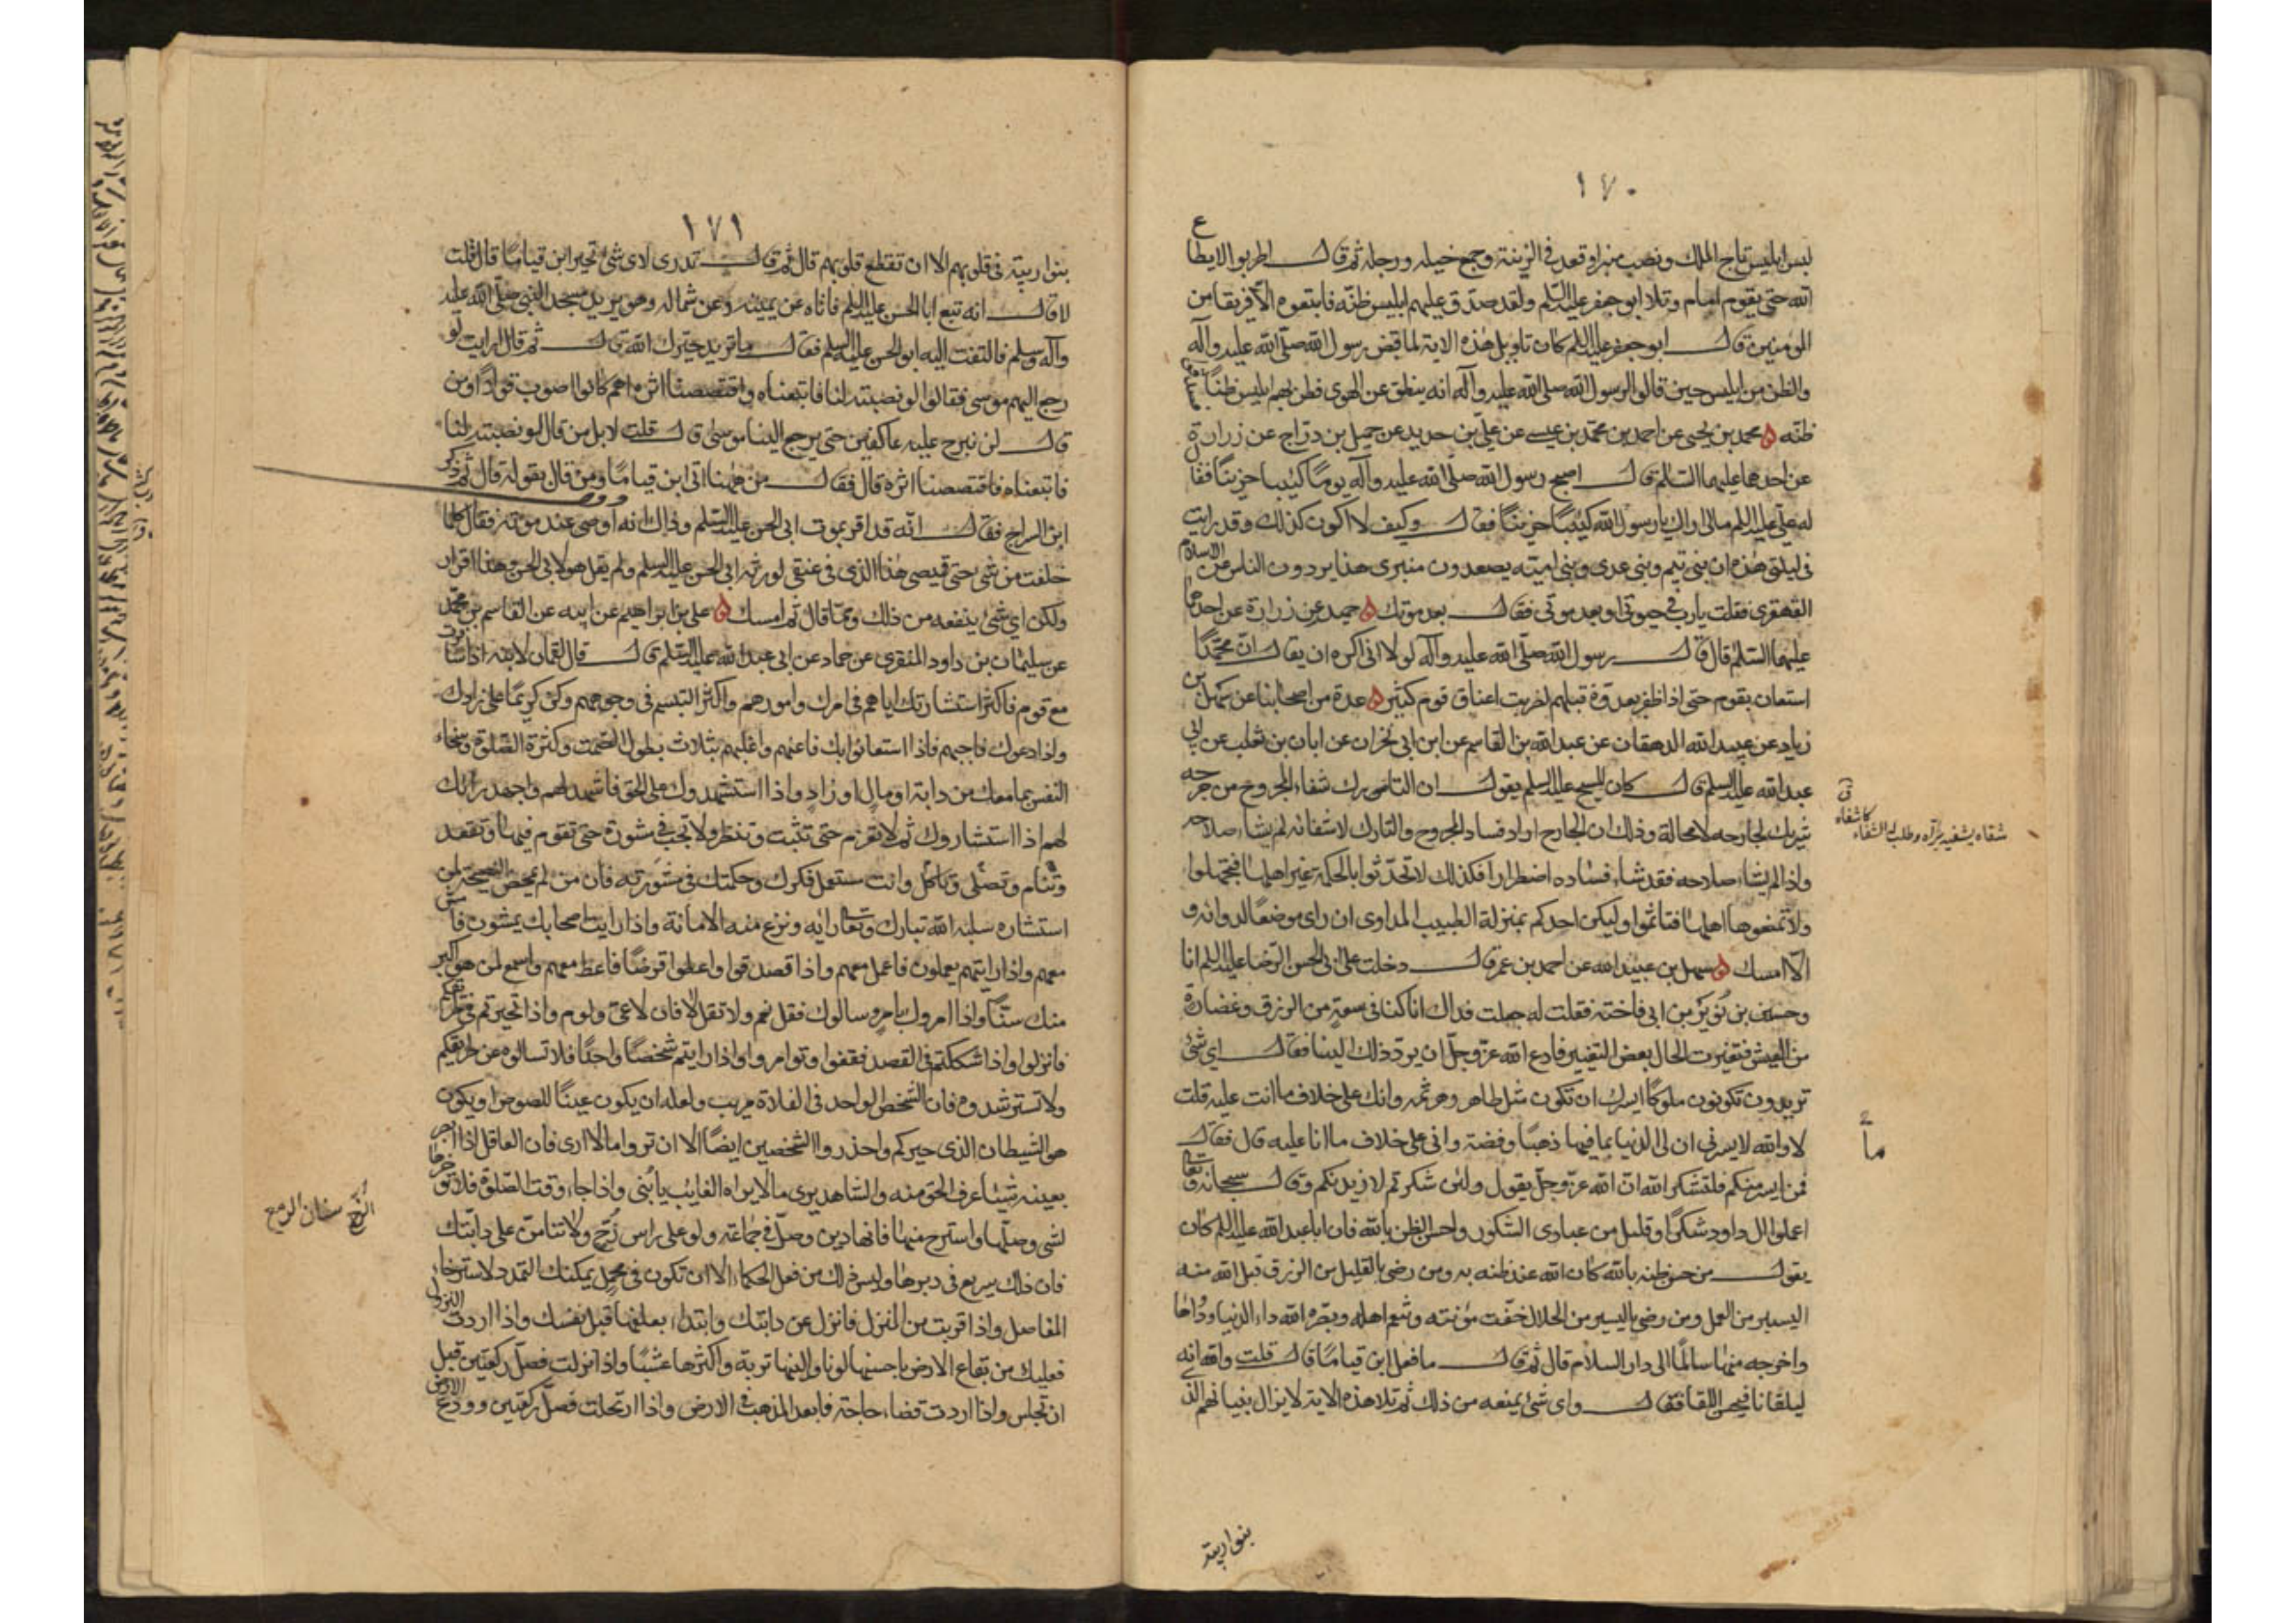 ١٧٠
لبس ابليس تاج الملك ونصب منبرا وقعد في الزينة وجمع خيله ورجله ثم قال اطربوا لا يطاع
الله حتى يقوم امام وتلا ابو جعفر عليه السلم ولقد صدق عليهم ابليس ظنه فاتبعوه الا فريقا من
المؤمنين قال ابو جعفر عليه السلم كان تاويل هذه الاية لما قبض رسول الله صلى الله عليه وآله
والظن من ابليس حين قالوا لرسول الله صلى الله عليه وآله انه ينطق عن الهوى فظن بهم ابليس ظنا
ظنه ٥ محمد بن يحيى عن احمد بن محمد بن عيسى عن علي بن حديد عن جميل بن دراج عن زرارة
عن احدهما عليهما السلم قال اصبح رسول الله صلى الله عليه وآله يوما كئيبا حزينا فقال
له علي عليه السلم مالي اراك يا رسول الله كئيبا حزينا فقال وكيف لا اكون كذلك وقد رايت
في ليلتي هذه ان بني تيم وبني عدى وبني امية يصعدون منبرى هذا يردون الناس عن الاسلام
القهقرى فقلت يا رب في حيوتي او بعد موتي فقال بعد موتك ٥ جميل عن زرارة عن احدهما
عليهما السلم قال قال رسول الله صلى الله عليه وآله لولا اني اكره ان يقال ان محمدا
استعان بقوم حتى اذا ظفر بعدوه قتلهم لضربت اعناق قوم كثير ٥ عدة من اصحابنا عن سهل بن
زياد عن عبيد الله الدهقان عن عبد الله بن القاسم عن ابن ابي نجران عن ابان بن تغلب عن ابي
عبد الله عليه السلم قال كان المسيح عليه السلم يقول ان التارك شفاء المجروح من جرحه
شريك لجارحه لا محالة وذلك ان الجارح اراد فساد المجروح والتارك لاشفائه لم يشاء صلاحه
واذا لم يشاء صلاحه فقد شاء فساده اضطرارا فكذلك لا تحدثوا بالحكمة غير اهلها فتجهلوا
ولا تمنعوها اهلها فتاثموا وليكن احدكم بمنزلة الطبيب المداوى ان راى موضعا لدوائه و
الا امسك ٥ سهل بن عبيد الله عن احمد بن عمر قال دخلت على ابي الحسن الرضا عليه السلم انا
وحسين بن ثوير بن ابي فاختة فقلت له جعلت فداك انا كنا في سعة من الرزق وغضارة
من العيش فتغيرت الحال بعض التغيير فادع الله عز وجل ان يرد ذلك الينا فقال اي شئ
تريدون تكونون ملوكا ايسرك ان تكون مثل طاهر وهرثمه وانك على خلاف ما انت عليه قلت
لا والله لا يسرني ان لي الدنيا بما فيها ذهبا وفضة واني على خلاف ما انا عليه قال فقال
فمن ايسر منكم فلتشكر الله ان الله عز وجل يقول ولئن شكرتم لازيدنكم وقال سبحانه وتعا
اعملوا ال داود شكرا وقليل من عبادى الشكور واحسن الظن بالله فان ابا عبد الله عليه السلم كان
يقول من حسن ظنه بالله كان الله عند ظنه به ومن رضي بالقليل من الرزق قبل الله منه
اليسير من العمل ومن رضي باليسير من الحلال خفت مؤنته وتنعم اهله وبصره الله داء الدنيا ودواءها
واخرجه منها سالما الى دار السلام قال ثم قال ما فعل ابن قياما قال قلت والله انه
ليلقانا فيحسن اللقاء فقال واى شئ يمنعه من ذلك ثم تلا هذه الاية لا يزال بنيانهم الذى
بنوا ريبة
شفاه يشفيه برأه وطلب له الشفاء كاشفاه ق
ما
١٧١
بنوا ريبة في قلوبهم الا ان تقطع قلوبهم قال ثم قال تدرى لاى شئ تحير ابن قياما قال قلت
لا قال انه تبع ابا الحسن عليه السلم فاتاه عن يمينه وعن شماله وهو يريد مسجد النبي صلى الله عليه
وآله وسلم فالتفت اليه ابو الحسن عليه السلم فقال ما تريد حيرك الله قال ثم قال ارايت لو
رجع اليهم موسى فقالوا لو نصبته لنا فاتبعناه واقتصصنا اثره اهم كانوا اصوب قولا او من
قال لن نبرح عليه عاكفين حتى يرجع الينا موسى قال قلت لا بل من قال لو نصبته لنا
فاتبعناه فاقتصصنا اثره قال فقال من ههنا اتى ابن قياما ومن قال بقوله قال ثم ذكر
ابن السراج فقال انه قد اقر بموت ابي الحسن عليه السلم وذلك انه اوصى عند موته فقال كلما
خلفت من شئ حتى قميصي هذا الذى في عنقي لورثة ابي الحسن عليه السلم ولم يقل هو لابي الحسن وهذا اقرار
ولكن اى شئ ينفعه من ذلك ومما قال ثم امسك ٥ علي بن ابراهيم عن ابيه عن القاسم بن محمد
عن سليمان بن داود المنقرى عن حماد عن ابي عبد الله عليه السلم قال قال لقمان لابنه اذا سافرت
مع قوم فاكثر استشارتك اياهم في امرك وامورهم واكثر التبسم في وجوههم وكن كريما على زادك
واذا دعوك فاجبهم فاذا استعانوا بك فاعنهم واغلبهم بثلاث بطول الصمت وكثرة الصلوة وسخاء
النفس بما معك من دابة او مال او زاد واذا استشهدوك على الحق فاشهد لهم واجهد رايك
لهم اذا استشاروك ثم لا تعزم حتى تثبت وتنظر ولا تجب في مشورة حتى تقوم فيها وتقعد
وتنام وتصلي وتاكل وانت مستعمل فكرك وحكمتك في مشورته فان من لم يمحض النصيحة لمن
استشاره سلبه الله تبارك وتعا رايه ونزع منه الامانة واذا رايت اصحابك يمشون فامش
معهم واذا رايتهم يعملون فاعمل معهم واذا تصدقوا واعطوا قرضا فاعط معهم واسمع لمن هو اكبر
منك سنا واذا امروك بامر وسالوك فقل نعم ولا تقل لا فان لا عى ولوم واذا تحيرتم في طريقكم
فانزلوا واذا شككتم في القصد فقفوا وتوامروا واذا رايتم شخصا واحدا فلا تسالوه عن طريقكم
ولا تسترشدوه فان الشخص الواحد في الفلاة مريب ولعله ان يكون عينا للصوص او يكون
هو الشيطان الذى حيركم واحذروا الشخصين ايضا الا ان تروا ما لا ارى فان العاقل اذا ابصر
بعينه شيئا عرف الحق منه والشاهد يرى ما لا يراه الغائب يا بني واذا جاء وقت الصلوة فلا تؤخرها
لشئ وصلها واسترح منها فانها دين وصل في جماعة ولو على راس زج ولا تنامن على دابتك
فان ذلك سريع في دبرها وليس ذلك من فعل الحكماء الا ان تكون في محمل يمكنك التمدد لاسترخاء
المفاصل واذا قربت من المنزل فانزل عن دابتك وابتدء بعلفها قبل نفسك واذا اردت النزول
فعليك من بقاع الارض باحسنها لونا والينها تربة واكثرها عشبا واذا نزلت فصل ركعتين قبل
ان تجلس واذا اردت قضاء حاجة فابعد المذهب في الارض واذا ارتحلت فصل ركعتين وودع الارض
الزج سنان الرمح